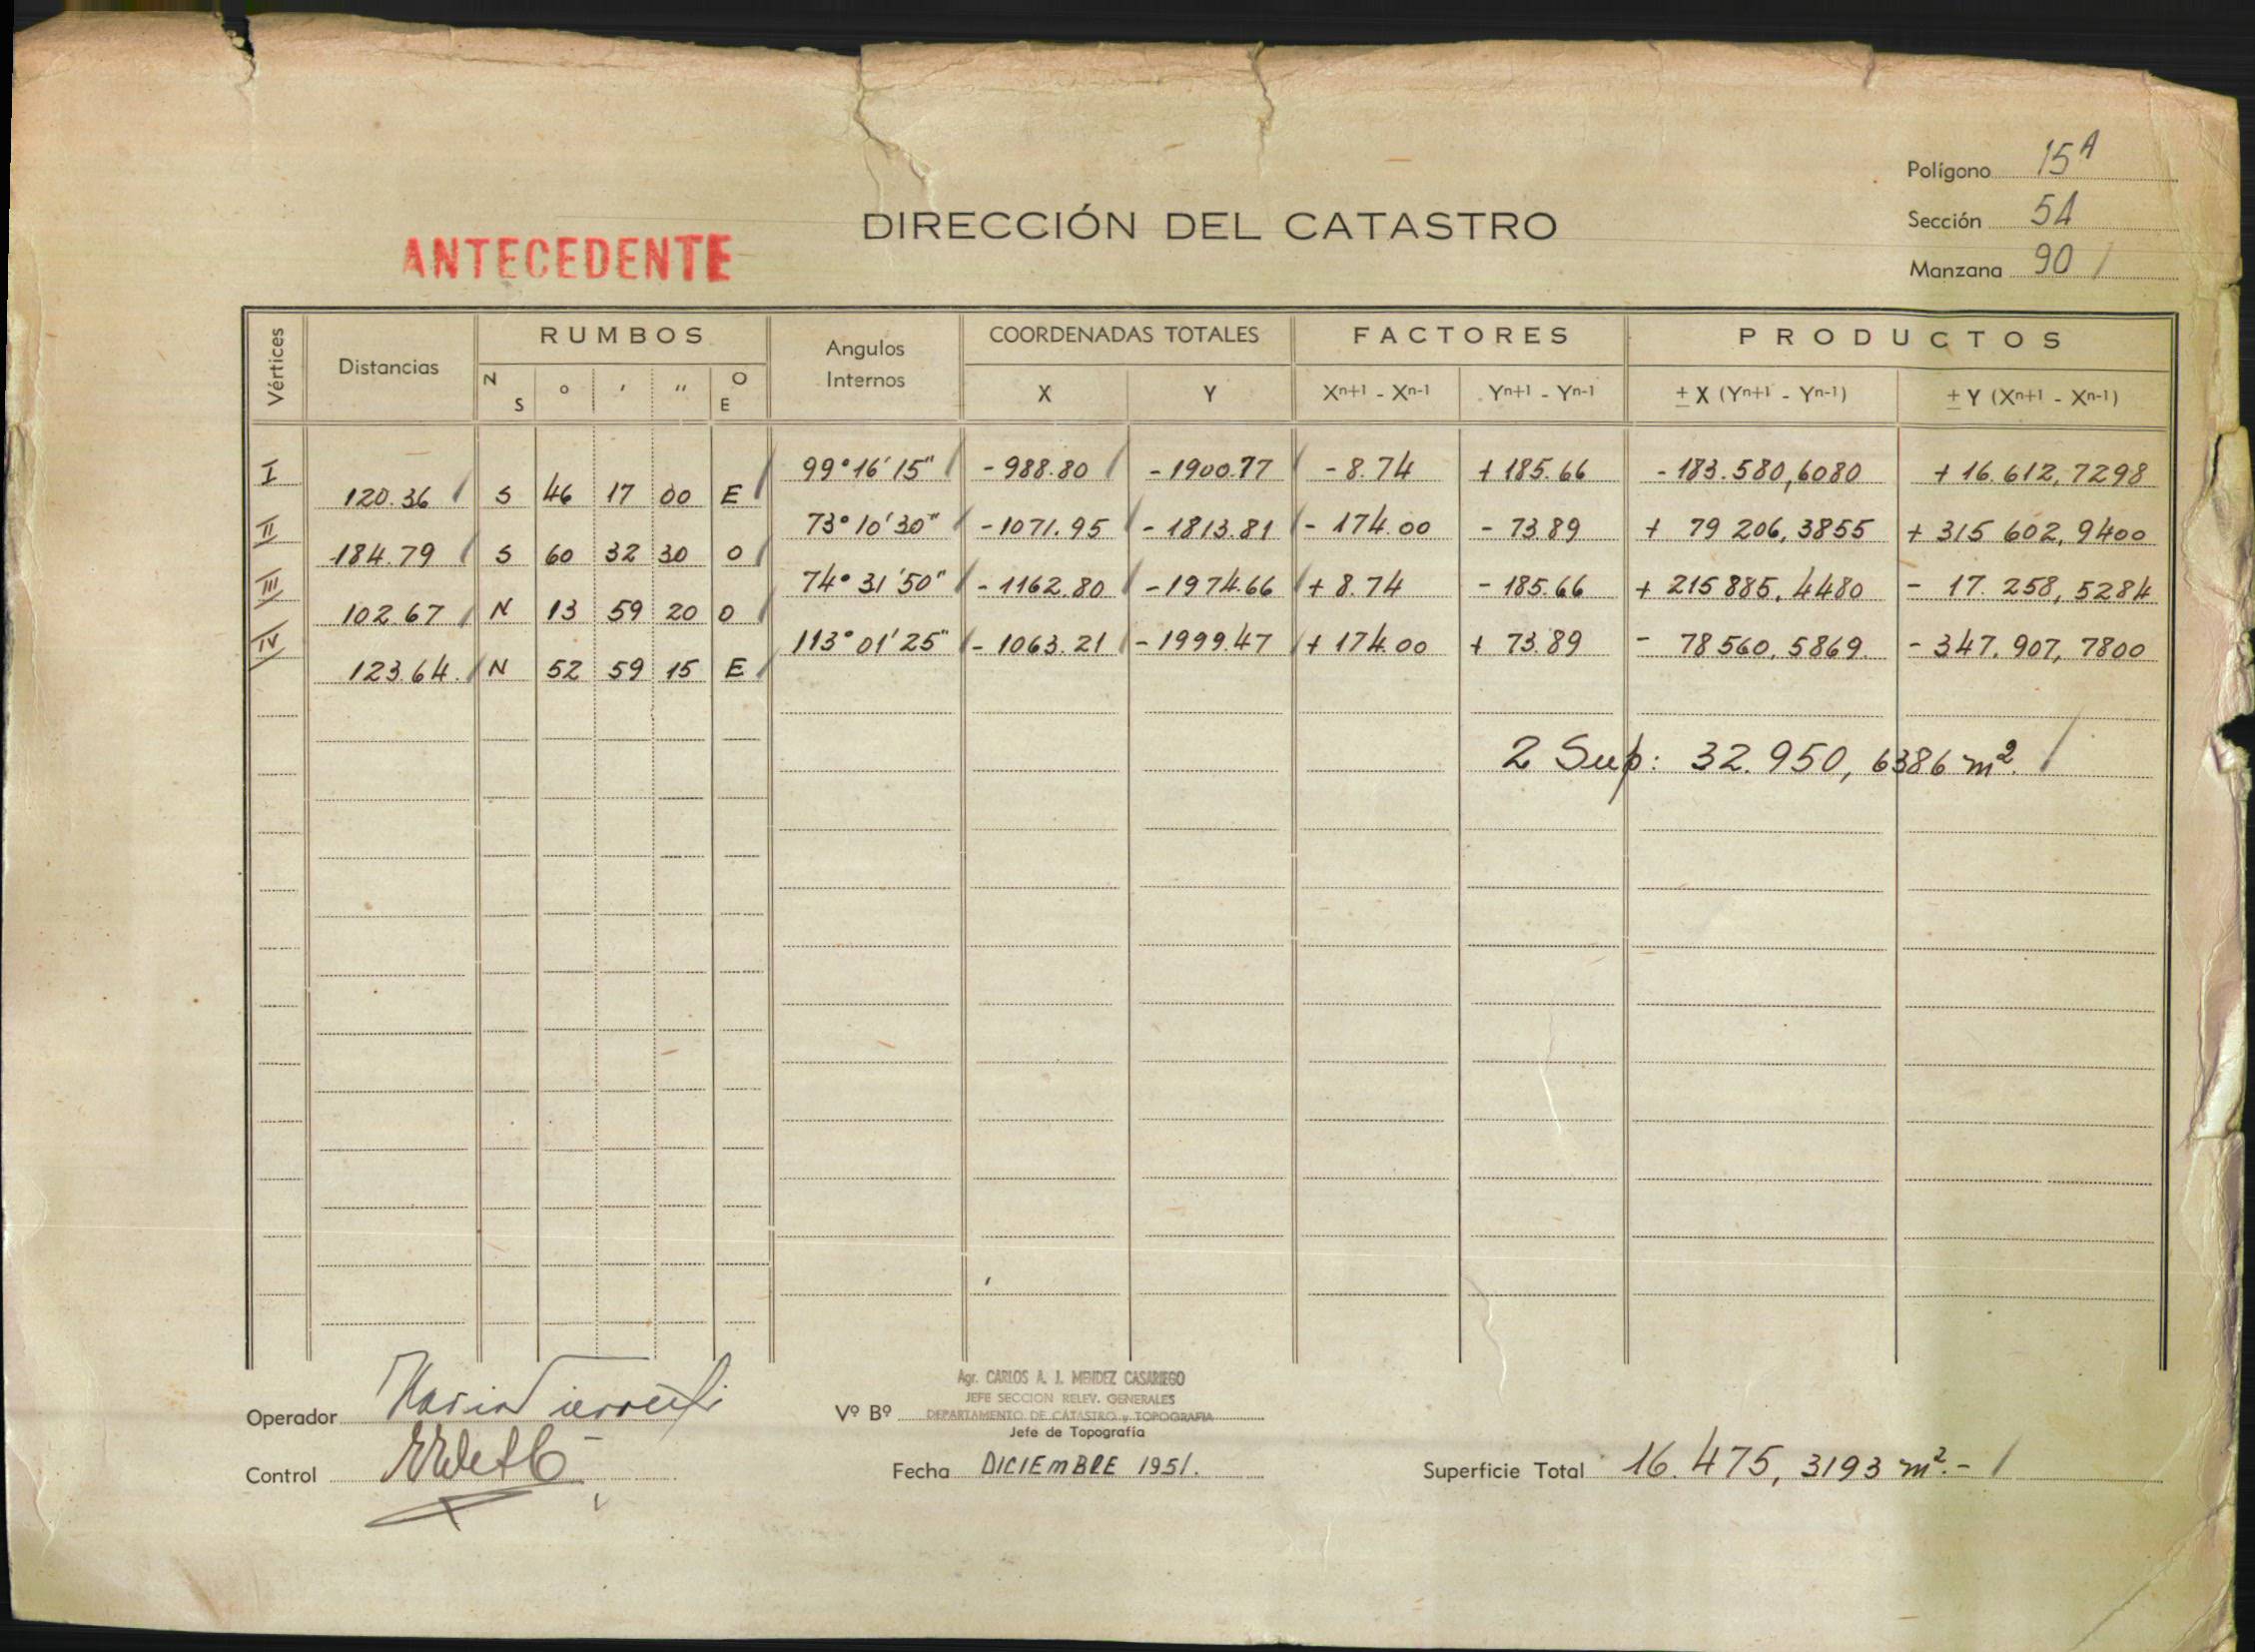 Polígono 15A
Sección 5A
Manzana 90
DIRECCIÓN DEL CATASTRO
ANTECEDENTE
Vértices Distancias RUMBOS Angulos Internos COORDENADAS TOTALES FACTORES PRODUCTOS
N S ° ' " O E X Y Xn+1 - Xn-1 Yn+1 - Yn-1 ± X (Yn+1 - Yn-1) ± Y (Xn+1 - Xn-1)
I 99°16'15" -988.80 -1900.77 -8.74 +185.66 -183.580,6080 +16.612,7298
120.36 S 46 17 00 E
II 73°10'30" -1071.95 -1813.81 -174.00 -73.89 + 79 206,3855 +315 602,9400
184.79 S 60 32 30 O
III 74°31'50" -1162.80 -1974.66 +8.74 -185.66 +215 885,4480 - 17.258,5284
102.67 N 13 59 20 O
IV 113°01'25" -1063.21 -1999.47 +174.00 +73.89 - 78 560,5869 -347.907,7800
123.64. N 52 59 15 E
2 Sup: 32.950,6386 m².
Operador
Control
Vº Bº
Agr. CARLOS A. J. MENDEZ CASARIEGO
JEFE SECCION RELEV. GENERALES
DEPARTAMENTO DE CATASTRO y TOPOGRAFIA
Jefe de Topografía
Fecha DICIEMBRE 1951.
Superficie Total 16.475,3193 m².-